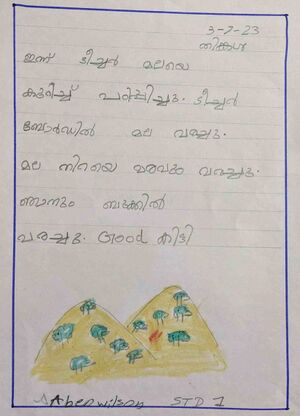 3-7-23
തിങ്കൾ
ഇന്ന് ടീച്ചർ മലയെ
കുറിച്ച് പഠിപ്പിച്ചു. ടീച്ചർ
ബോർഡിൽ മല വരച്ചു.
മല നിറയെ മരവും വരച്ചു.
ഞാനും ബുക്കിൽ
വരച്ചു. Good കിട്ടി
Aben wilson STD 1